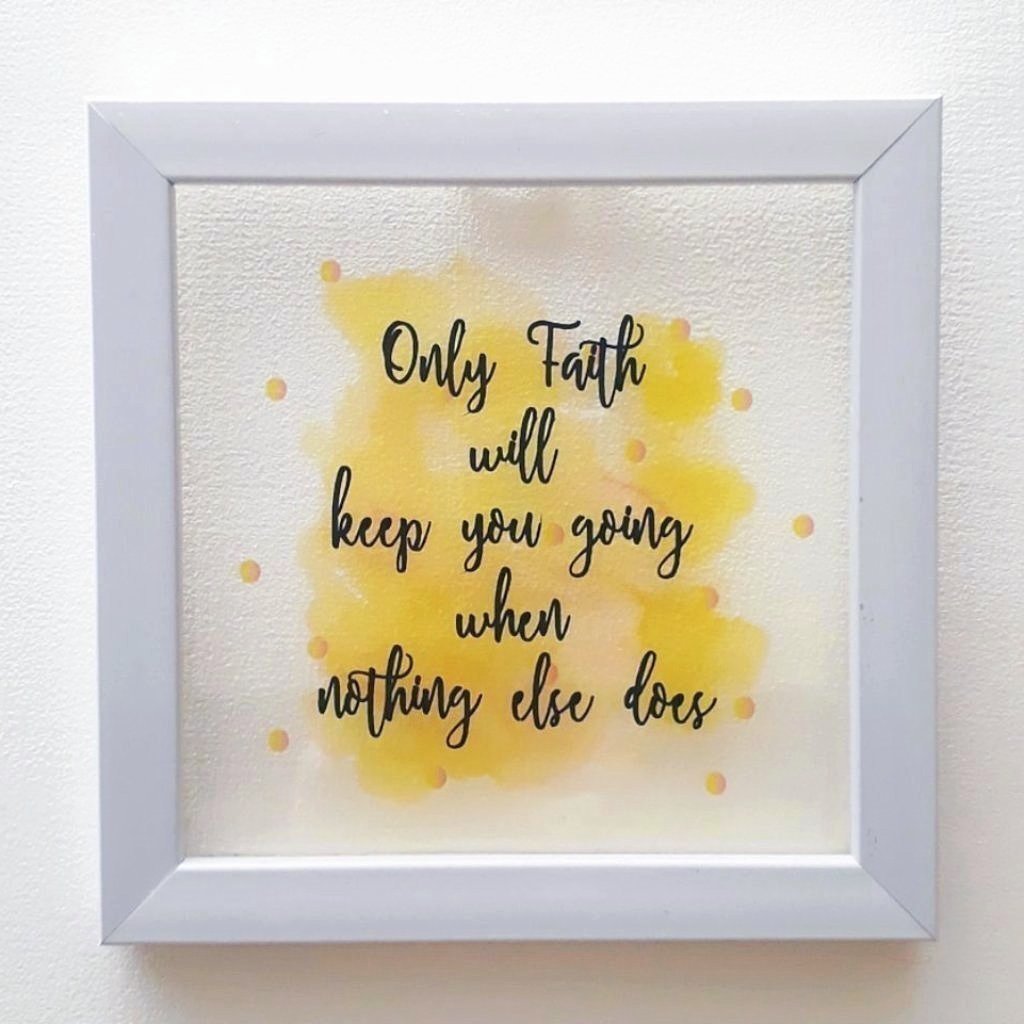 Only Faith
will
keep you going
when
nothing else does